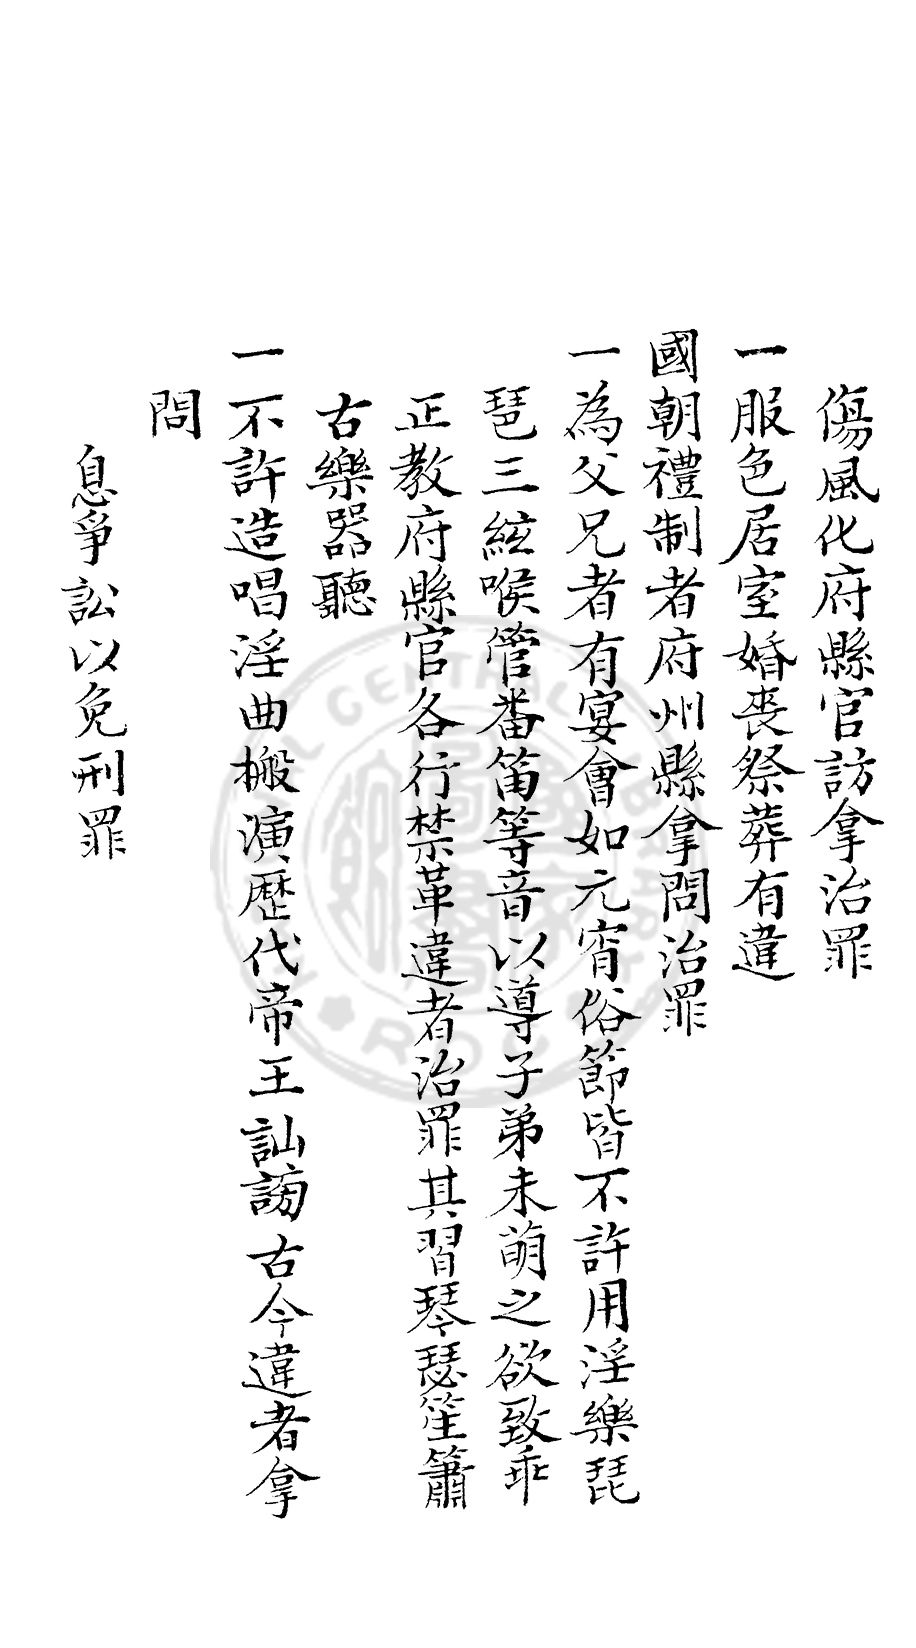 傷風化府縣官訪拿治罪
一服色居室婚喪祭葬有違
國朝禮制者府州縣拿問治罪
一為父兄者有宴會如元宵俗節皆不許用淫樂琵
琶三絃喉管番笛等音以導子弟未萌之欲致乖
正教府縣官各行禁革違者治罪其習琴瑟笙簫
古樂器聽
一不許造唱淫曲搬演歷代帝王訕謗古今違者拿
問
息爭訟以免刑罪